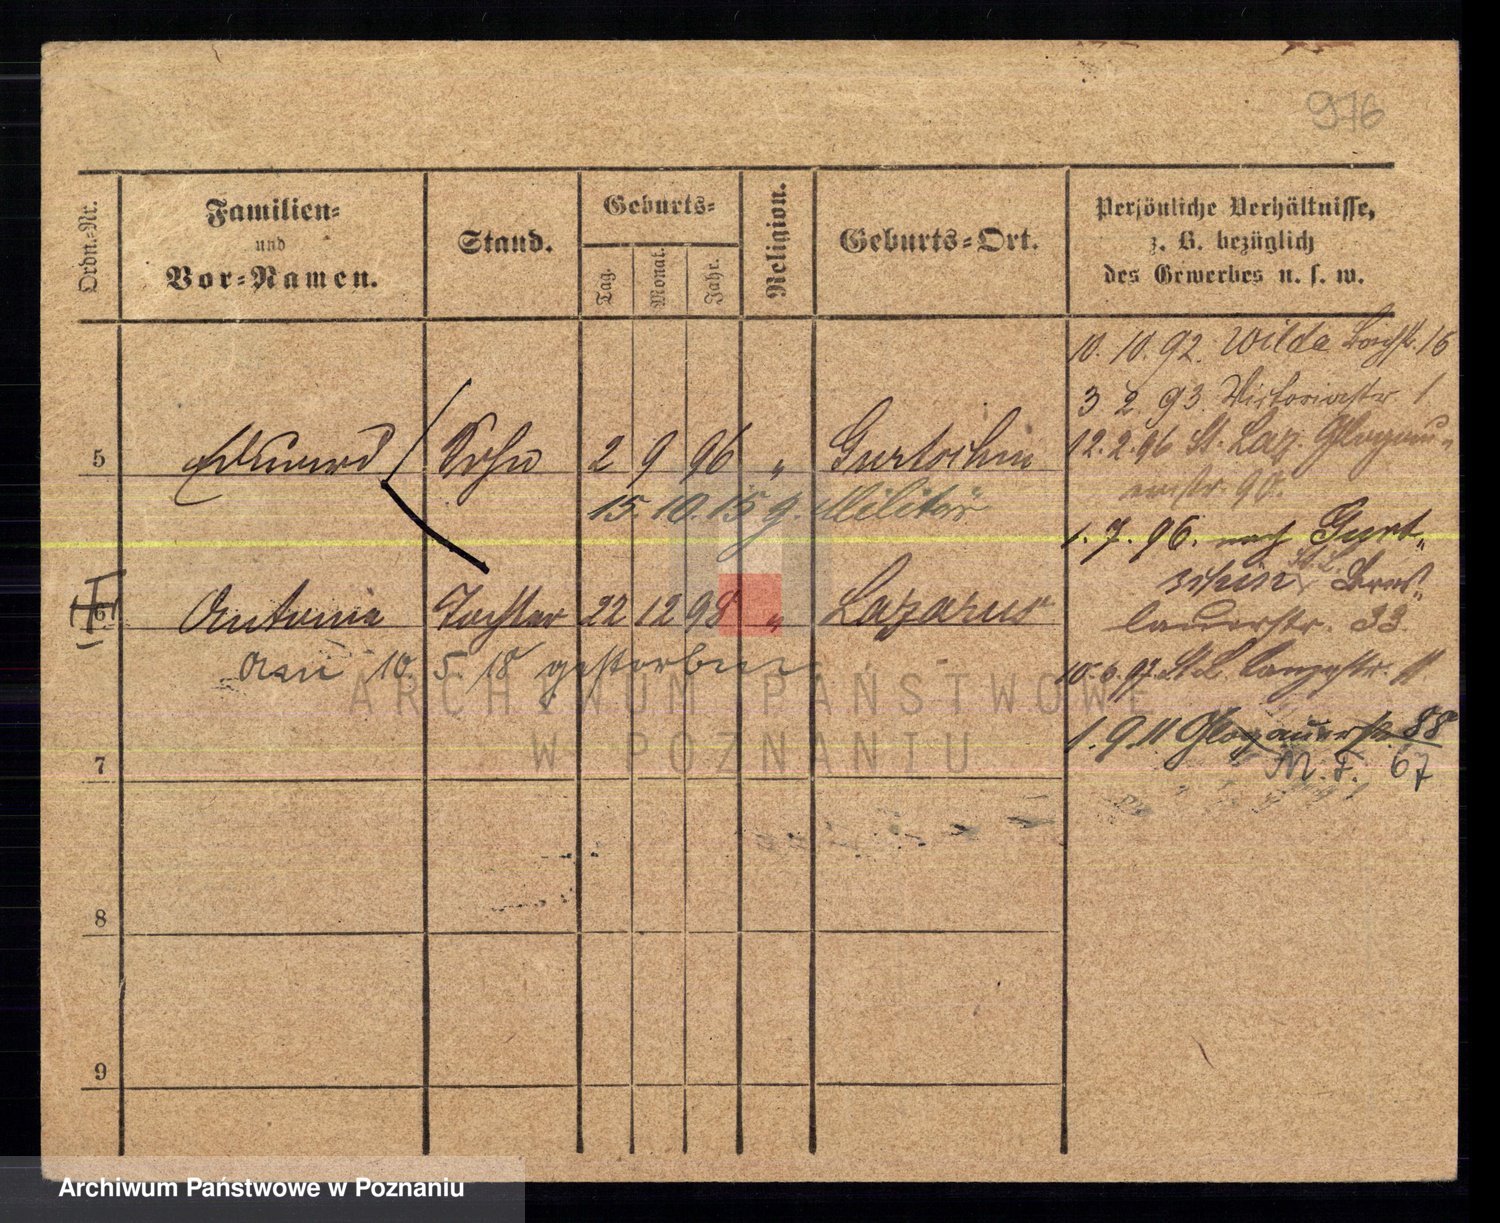 976
Ordn.-Nr.
Familien-
und
Vor-Namen.
Stand.
Geburts-
Tag.
Monat.
Jahr.
Religion.
Geburts-Ort.
Persönliche Verhältnisse,
z. B. bezüglich
des Gewerbes u. s. w.
10. 10. 92. Wilda 16
3 2. 93. Victoriastr 1.
5 Eduard Sohn 2 9 96 " Gurtschin
12. 2. 96 St. Laz. Glogau-
erstr. 90.
15. 10. 15 z. Militär
1. 7. 96. nach Gurt-
schin St. L. Bres-
6 Antonie Tochter 22 12 98 " Lazarus
lauerstr. 33
am 10. 5. 18 gestorben
10. 6. 97 St. L. 11.
1. 9. 11 Glogauerstr. 88
M. F. 67
7
8
9
ARCHIWUM PAŃSTWOWE
W POZNANIU
Archiwum Państwowe w Poznaniu